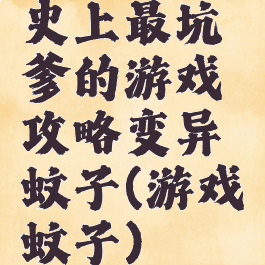 史上最坑
爹的游戏
攻略变异
蚊子(游戏
蚊子)